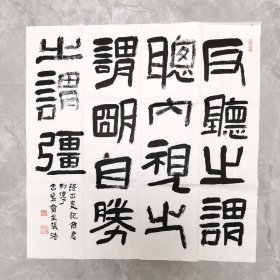 反聽之謂
聰内視之
謂明自勝
之謂彊